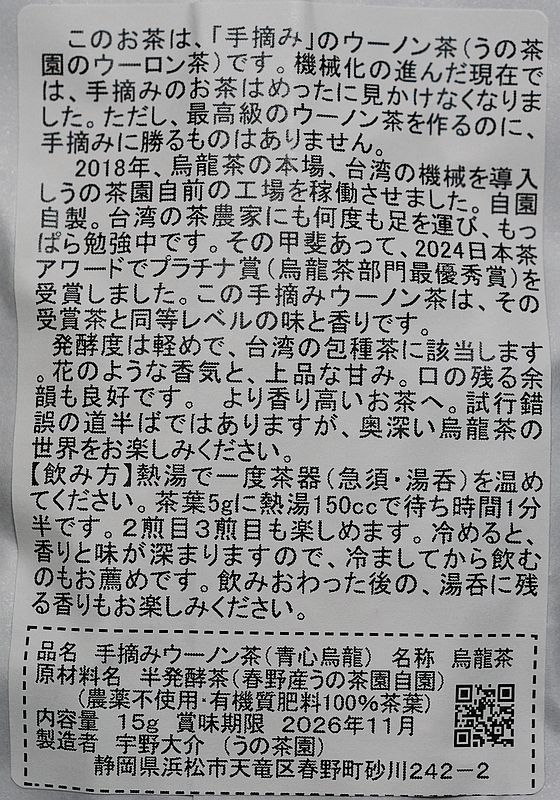 このお茶は、「手摘み」のウーノン茶(うの茶
園のウーロン茶)です。機械化の進んだ現在で
は、手摘みのお茶はめったに見かけなくなりま
した。ただし、最高級のウーノン茶を作るのに、
手摘みに勝るものはありません。
2018年、烏龍茶の本場、台湾の機械を導入
しうの茶園自前の工場を稼働させました。自園
自製。台湾の茶農家にも何度も足を運び、もっ
ぱら勉強中です。その甲斐あって、2024日本茶
アワードでプラチナ賞(烏龍茶部門最優秀賞)を
受賞しました。この手摘みウーノン茶は、その
受賞茶と同等レベルの味と香りです。
発酵度は軽めで、台湾の包種茶に該当します
。花のような香気と、上品な甘み。口の残る余
韻も良好です。 より香り高いお茶へ。試行錯
誤の道半ばではありますが、奥深い烏龍茶の
世界をお楽しみください。
【飲み方】熱湯で一度茶器(急須・湯呑)を温め
てください。茶葉5gに熱湯150ccで待ち時間1分
半です。2煎目3煎目も楽しめます。冷めると、
香りと味が深まりますので、冷ましてから飲む
のもお薦めです。飲みおわった後の、湯呑に残
る香りもお楽しみください。
品名 手摘みウーノン茶(青心烏龍) 名称 烏龍茶
原材料名 半発酵茶(春野産うの茶園自園)
(農薬不使用・有機質肥料100%茶葉)
内容量 15g 賞味期限 2026年11月
製造者 宇野大介 (うの茶園)
静岡県浜松市天竜区春野町砂川242-2